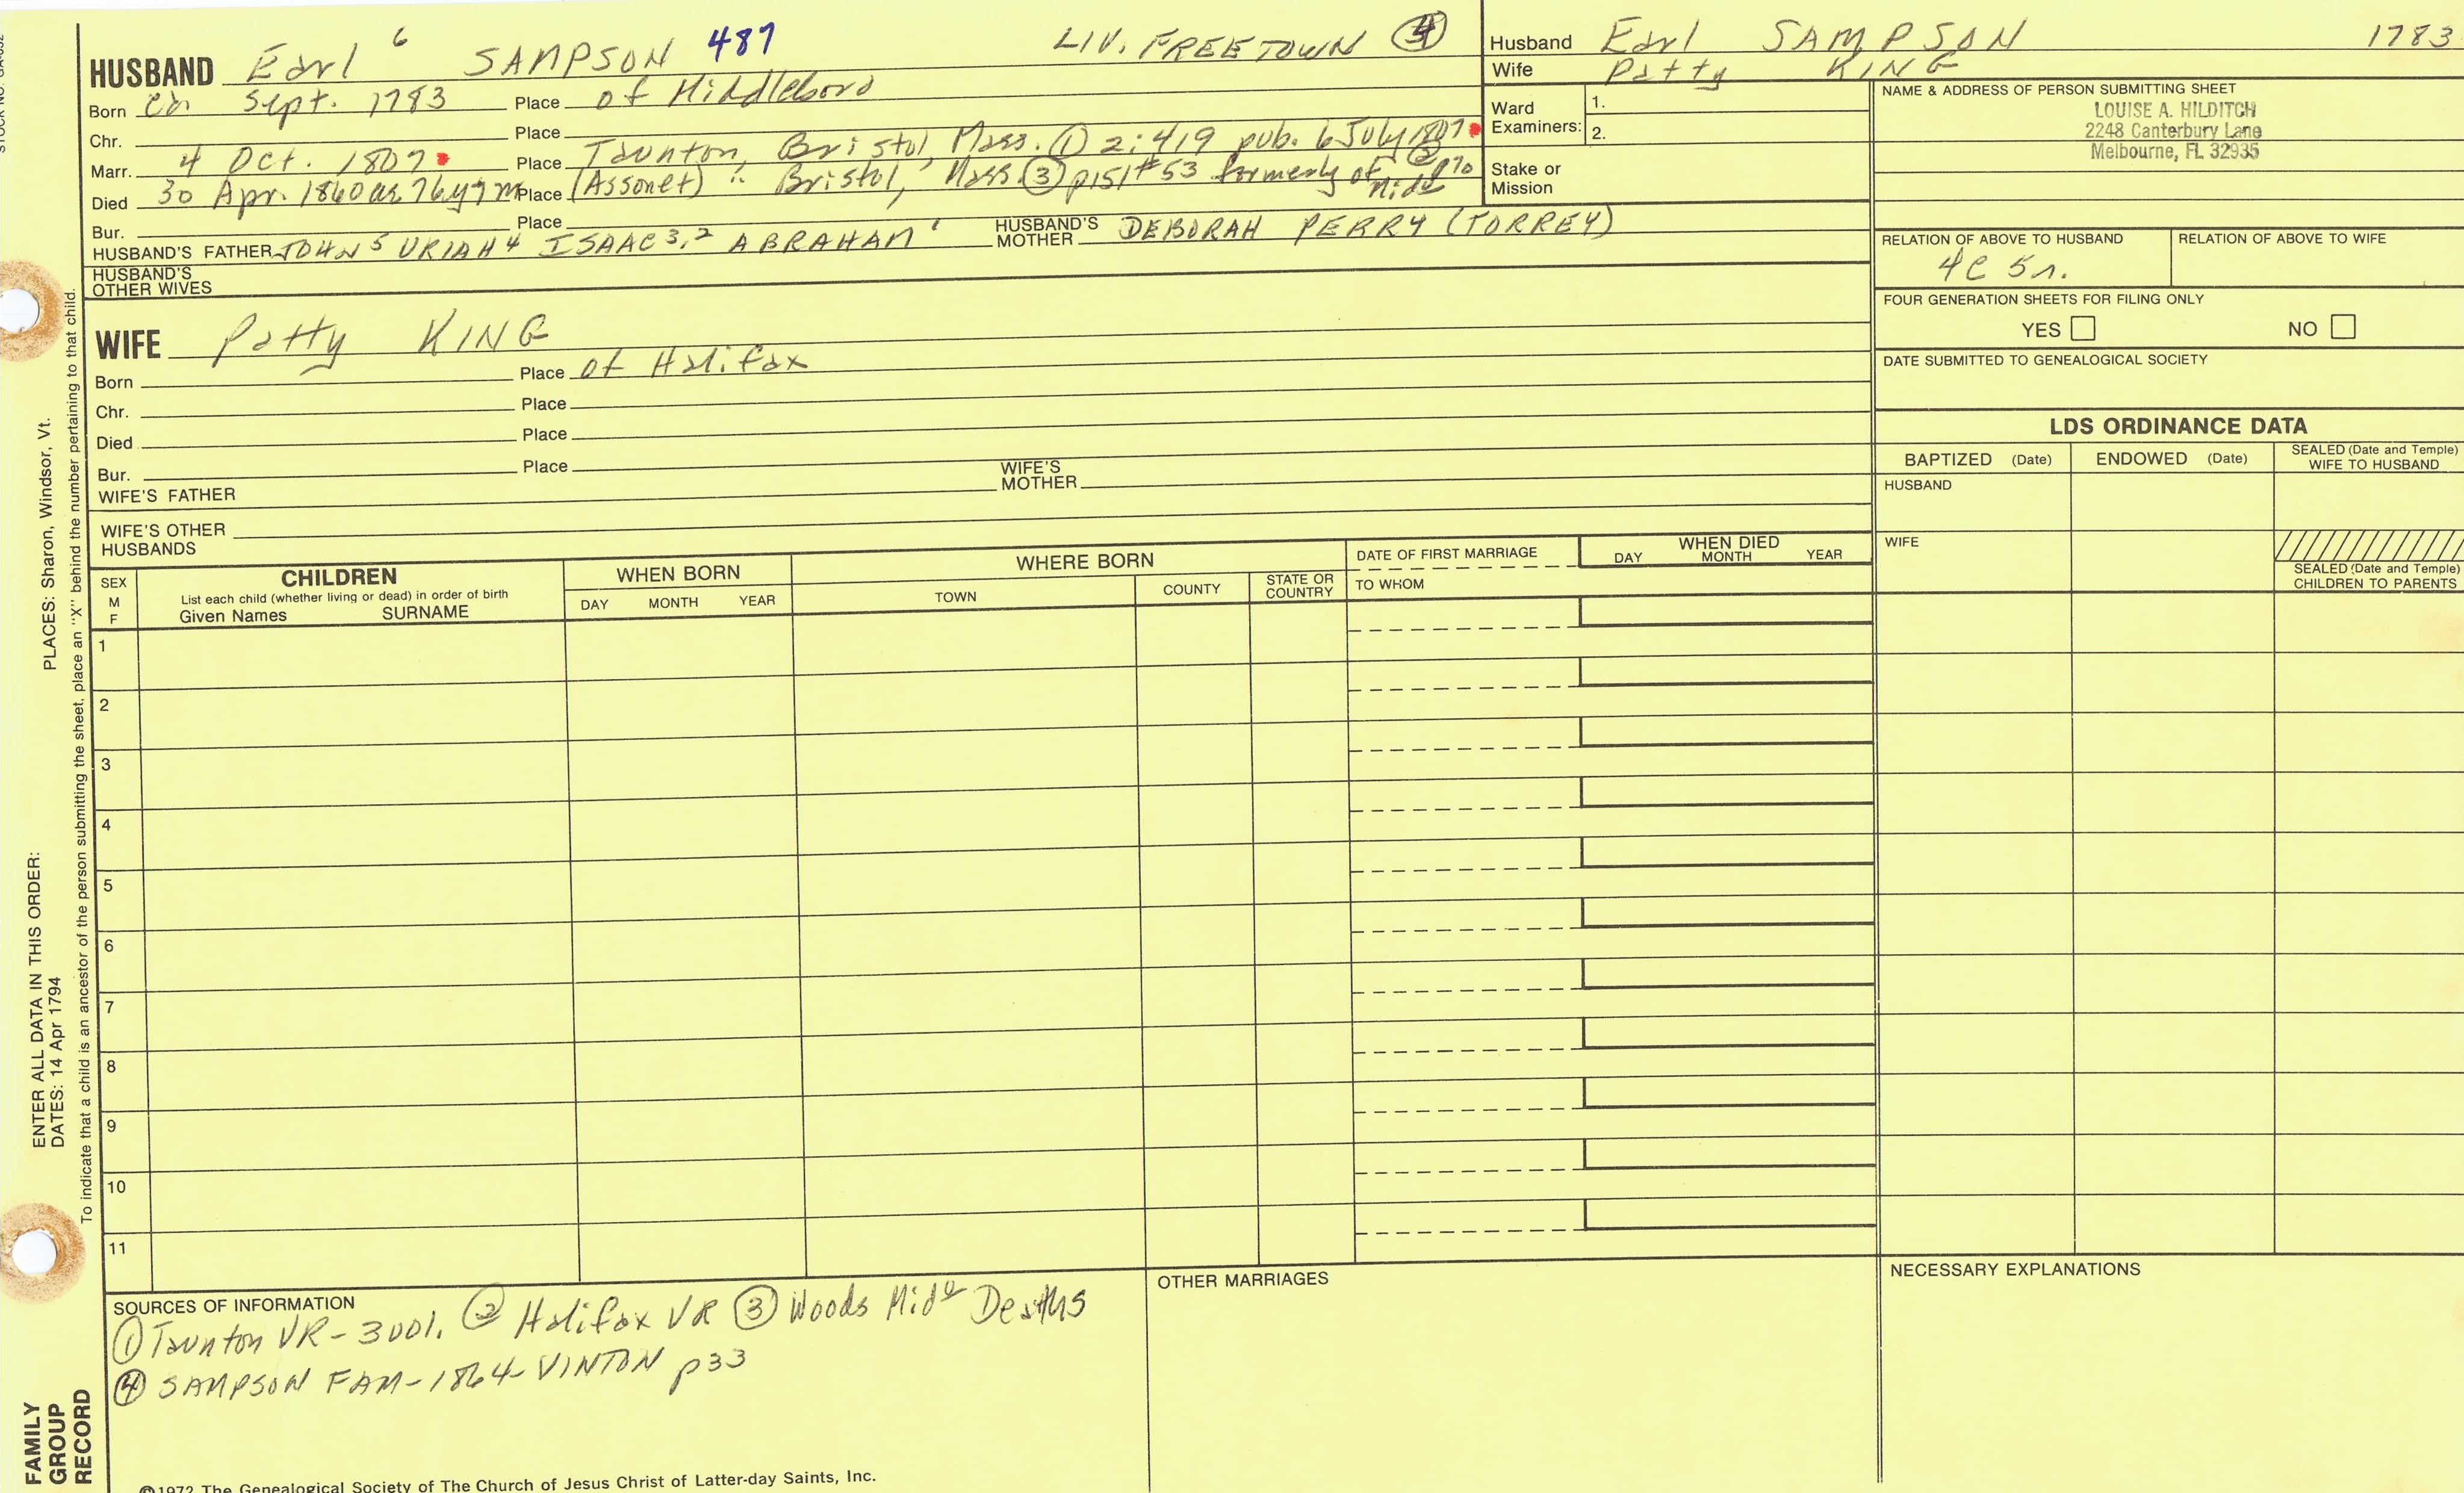 HUSBAND Earl 6 SAMPSON 487 LIV. FREETOWN ④
Born ca Sept. 1783 Place of Middleboro
Chr. Place
Marr. 4 Oct. 1807 Place Taunton, Bristol, Mass. ① 2:419 pub. 6 July 1807 ②
Died 30 Apr. 1860 ae 76y 7m Place (Assonet) " Bristol, Mass. ③ p151 #53 formerly of Midd
Bur. Place
HUSBAND'S FATHER JOHN 5 URIAH 4 ISAAC 3,2 ABRAHAM 1 HUSBAND'S MOTHER DEBORAH PERRY (TORREY)
HUSBAND'S OTHER WIVES
WIFE Patty KING
Born Place of Halifax
Chr. Place
Died Place
Bur. Place
WIFE'S FATHER WIFE'S MOTHER
WIFE'S OTHER HUSBANDS
Husband Earl SAMPSON 1783
Wife Patty KING
Ward Examiners: 1.
2.
Stake or Mission
NAME & ADDRESS OF PERSON SUBMITTING SHEET
LOUISE A. HILDITCH
2248 Canterbury Lane
Melbourne, FL 32935
RELATION OF ABOVE TO HUSBAND RELATION OF ABOVE TO WIFE
4C 5r.
FOUR GENERATION SHEETS FOR FILING ONLY
YES NO
DATE SUBMITTED TO GENEALOGICAL SOCIETY
LDS ORDINANCE DATA
BAPTIZED (Date) ENDOWED (Date) SEALED (Date and Temple) WIFE TO HUSBAND
HUSBAND
WIFE
SEALED (Date and Temple) CHILDREN TO PARENTS
SEX M F
CHILDREN
List each child (whether living or dead) in order of birth
Given Names SURNAME
WHEN BORN
DAY MONTH YEAR
WHERE BORN
TOWN COUNTY STATE OR COUNTRY
DATE OF FIRST MARRIAGE
TO WHOM
WHEN DIED
DAY MONTH YEAR
1
2
3
4
5
6
7
8
9
10
11
SOURCES OF INFORMATION
① Taunton VR-3001. ② Halifax VR ③ Woods Mide Deaths
④ SAMPSON FAM-1864-VINTON p33
OTHER MARRIAGES
NECESSARY EXPLANATIONS
©1972 The Genealogical Society of The Church of Jesus Christ of Latter-day Saints, Inc.
ENTER ALL DATA IN THIS ORDER:
DATES: 14 Apr 1794
PLACES: Sharon, Windsor, Vt.
To indicate that a child is an ancestor of the person submitting the sheet, place an "X" behind the number pertaining to that child.
FAMILY
GROUP
RECORD